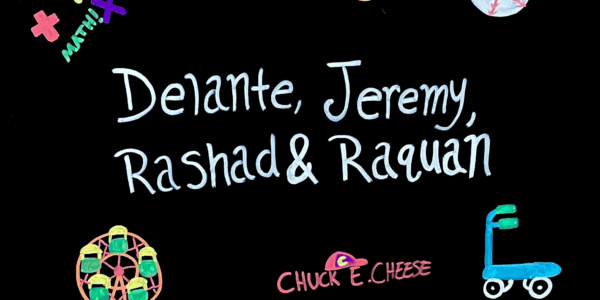 MATH!
Delante, Jeremy,
Rashad & Raquan
CHUCK E. CHEESE